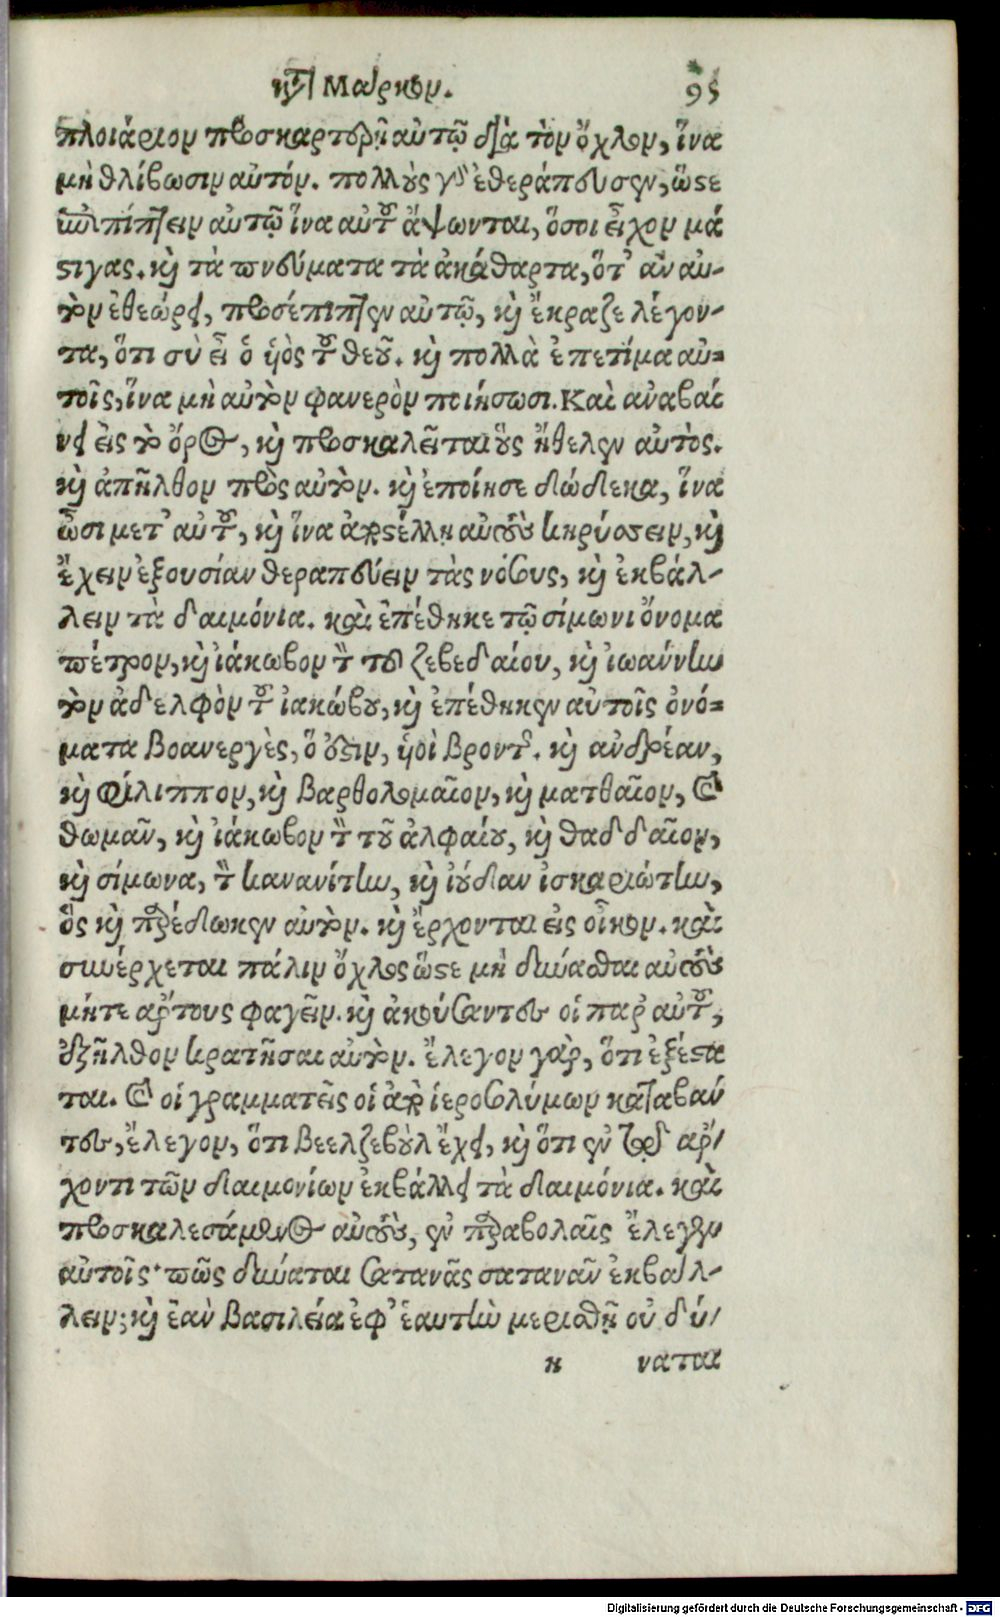 κτ Μάρκον. 95
πλοιάριον προσκαρτερῇ αὐτῷ διὰ τὸν ὄχλον, ἵνα
μὴ θλίβωσιν αὐτόν. πολλοὺς γὰρ ἐθεράπευσεν, ὥστε
ἐπιπίπτειν αὐτῷ ἵνα αὐτοῦ ἅψωνται, ὅσοι εἶχον μά
στιγας. καὶ τὰ πνεύματα τὰ ἀκάθαρτα, ὅτ' ἂν αὐ-
τὸν ἐθεώρει, προσέπιπτεν αὐτῷ, καὶ ἔκραζε λέγον-
τα, ὅτι σὺ εἶ ὁ υἱὸς τοῦ θεοῦ. καὶ πολλὰ ἐπετίμα αὐ-
τοῖς, ἵνα μὴ αὐτὸν φανερὸν ποιήσωσι. Καὶ ἀναβαί
νει εἰς τὸ ὄρος, καὶ προσκαλεῖται οὓς ἤθελεν αὐτὸς.
καὶ ἀπῆλθον πρὸς αὐτὸν. καὶ ἐποίησε δώδεκα, ἵνα
ὦσι μετ' αὐτοῦ, καὶ ἵνα ἀποστέλλῃ αὐτοὺς κηρύσσειν, καὶ
ἔχειν ἐξουσίαν θεραπεύειν τὰς νόσους, καὶ ἐκβάλ-
λειν τὰ δαιμόνια. καὶ ἐπέθηκε τῷ σίμωνι ὄνομα
πέτρον, καὶ ἰάκωβον τὸν τοῦ ζεβεδαίου, καὶ ἰωάννην
τὸν ἀδελφὸν τοῦ ἰακώβου, καὶ ἐπέθηκεν αὐτοῖς ὀνό-
ματα βοανεργὲς, ὅ ἐστιν, υἱοὶ βροντῆς. καὶ ἀνδρέαν,
καὶ Φίλιππον, καὶ βαρθολομαῖον, καὶ ματθαῖον, καὶ
θωμᾶν, καὶ ἰάκωβον τὸν τοῦ ἀλφαίου, καὶ θαδδαῖον,
καὶ σίμωνα, τὸν κανανίτην, καὶ ἰούδαν ἰσκαριώτην,
ὃς καὶ παρέδωκεν αὐτὸν. καὶ ἔρχονται εἰς οἶκον. καὶ
συνέρχεται πάλιν ὄχλος ὥστε μὴ δύνασθαι αὐτοὺς
μήτε ἄρτους φαγεῖν. καὶ ἀκούσαντες οἱ παρ' αὐτοῦ,
ἐξῆλθον κρατῆσαι αὐτὸν. ἔλεγον γὰρ, ὅτι ἐξέστα
ται. καὶ οἱ γραμματεῖς οἱ ἀπὸ ἱεροσολύμων καταβάν
τες, ἔλεγον, ὅτι βεελζεβοὺλ ἔχει, καὶ ὅτι ἐν τῷ ἄρ-
χοντι τῶν δαιμονίων ἐκβάλλει τὰ δαιμόνια. καὶ
προσκαλεσάμενος αὐτοὺς, ἐν παραβολαῖς ἔλεγεν
αὐτοῖς· πῶς δύναται σατανᾶς σατανᾶν ἐκβάλ-
λειν; καὶ ἐὰν βασιλεία ἐφ' ἑαυτὴν μερισθῇ οὐ δύ-
n ναται
Digitalisierung gefördert durch die Deutsche Forschungsgemeinschaft - DFG